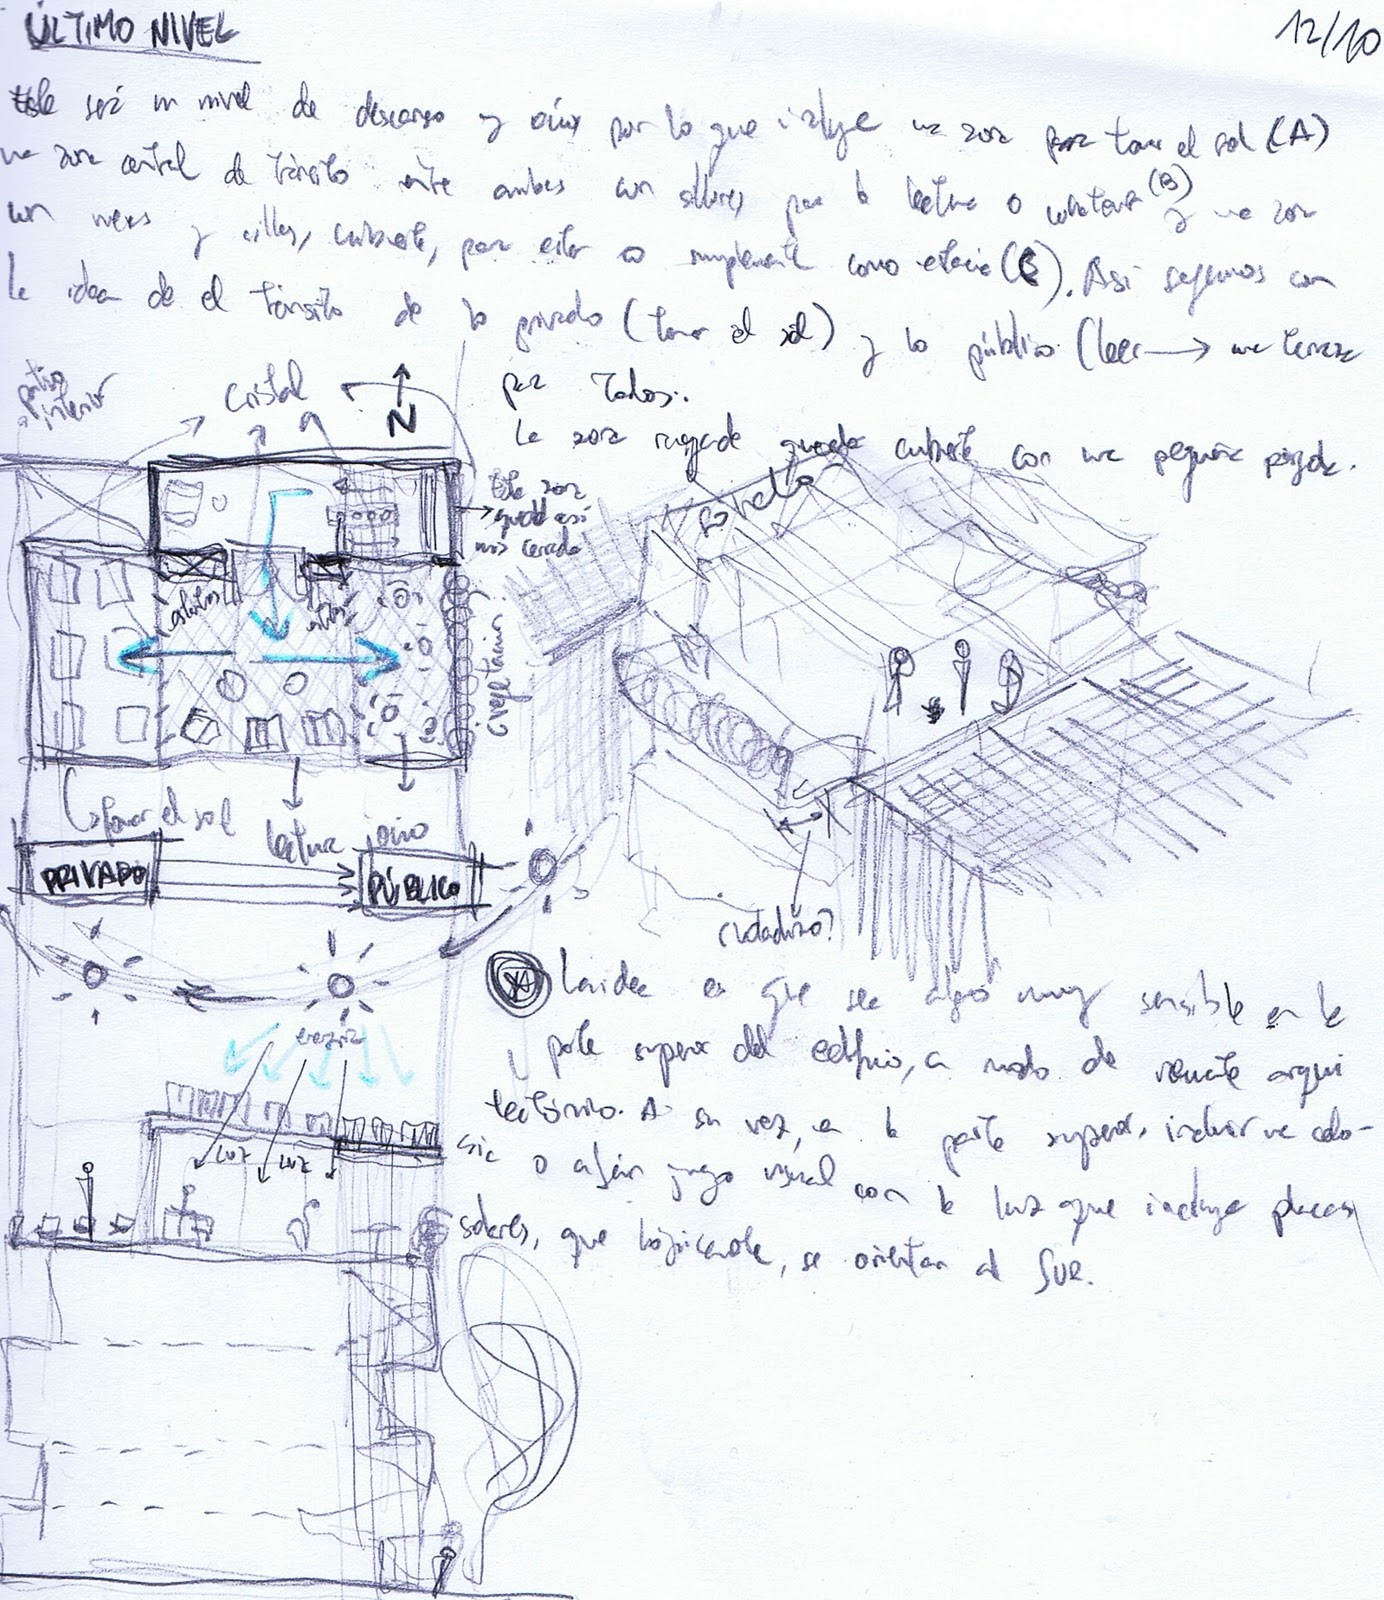 ÚLTIMO NIVEL
12/10
Este será un nivel de descanso y por lo que incluye una zona para tomar el sol (A)
una zona central de tránsito entre ambas con sillones para la lectura o (B) y una zona
con mesas y sillas, cubierta, para estar o simplemente como estancia (C). Así seguimos con
la idea de el tránsito de lo privado (tomar el sol) y lo público (leer → una terraza
para todos.
La zona rayada queda cubierta con una pequeña
patio
interior
cristal
N
Esta zona
queda así
más cerrada
estantes
(vegetación)
tomar el sol
lectura
PRIVADO
PÚBLICO
ciudadizo?
energía
LUZ
LUZ
A La idea es que sea algo muy sensible en la
parte superior del edificio, a modo de remate arqui
tectónico. A su vez, en la parte superior, incluir una celo-
sía o algún juego visual con la luz que incluya placas
solares, que lógicamente, se orientan al Sur.